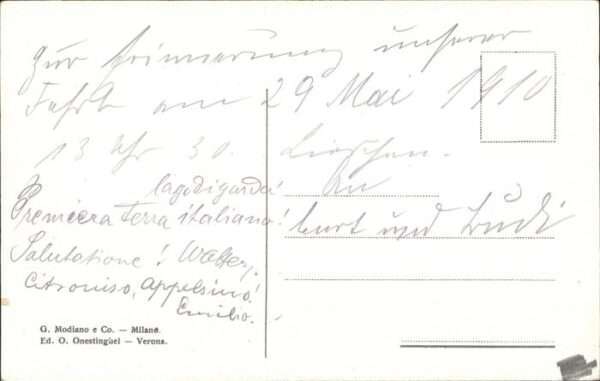 Zur Erinnerung unserer
Fahrt am 29 Mai 1910
13 Uhr 30. Lieschen.
An
lagodigarda!
Premiera terra italiano! Curt und Rudi
Salutatione! Walter,
Citroniso, Appelsino!
Emilio.
G. Modiano e Co. — Milano.
Ed. O. Onestinghel — Verona.